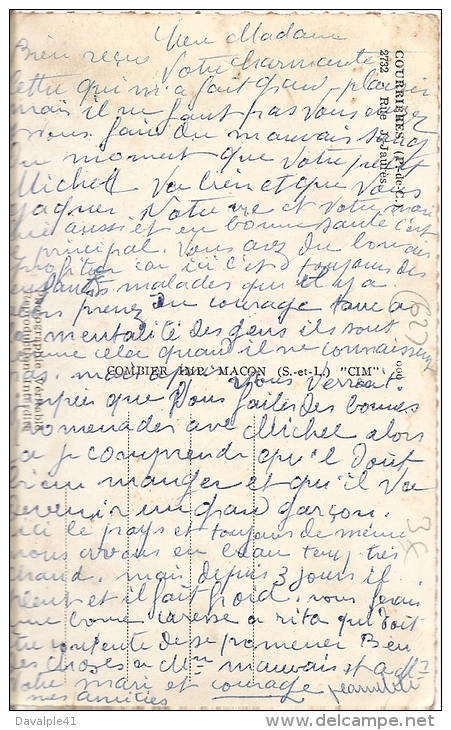 Chère Madame
Bien reçu Votre charmante
lettre qui m'a fait grand plaisir
mais il ne faut pas vous
vous faire du mauvais sang
du moment que Votre petit
Michel va bien et que Vous
gagnez Votre vie et Votre mari
aussi et en bonne santé c'est
principal. Vous avez du bon
profiter car ici c'est toujours des
enfants malades que il y a
prenez du courage
mentalité des gens ils sont
comme cela quand il ne connaissent
pas. Vous verrez
après que Vous faites des bonnes
promenades avec Michel alors
la je comprends qu'il doit
bien manger et qu'il va
devenir un grand garçon.
ici le pays et toujours de même
nous avons eu beau temps très
chaud. mais depuis 3 jours il
pleut et il fait froid. vous ferais
une bonne caresse a rita qui doit
être contente de se promener Bien
des choses a Mme mauvais et a Mr
votre mari et courage
mes amitiés
COURRIÈRES (P.-de-C.)
2732 Rue J.-Jaurès
COMBIER IMP. MACON (S.-et-L.) "CIM"
Photographie Véritable
Reproduction interdite
(62)
3€
Davalple41
delcampe.net